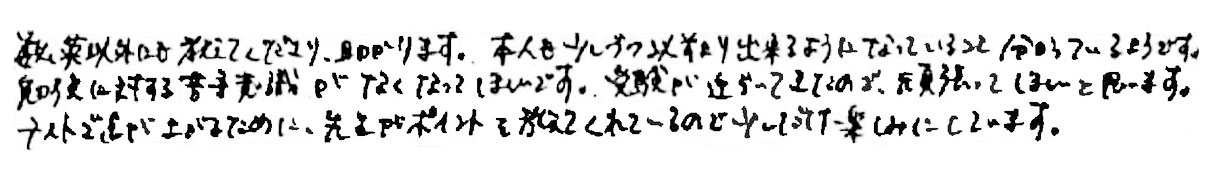 数、英以外にも教えてくださり、助かります。本人も少しずつ以前より出来るようになっていると分かっているようです。
勉強に対する苦手意識がなくなってほしいです。受験が近づいてきたので、頑張ってほしいと思います。
テストで点が上がるために、先生がポイントを教えてくれているので少しだけ楽しみにしています。